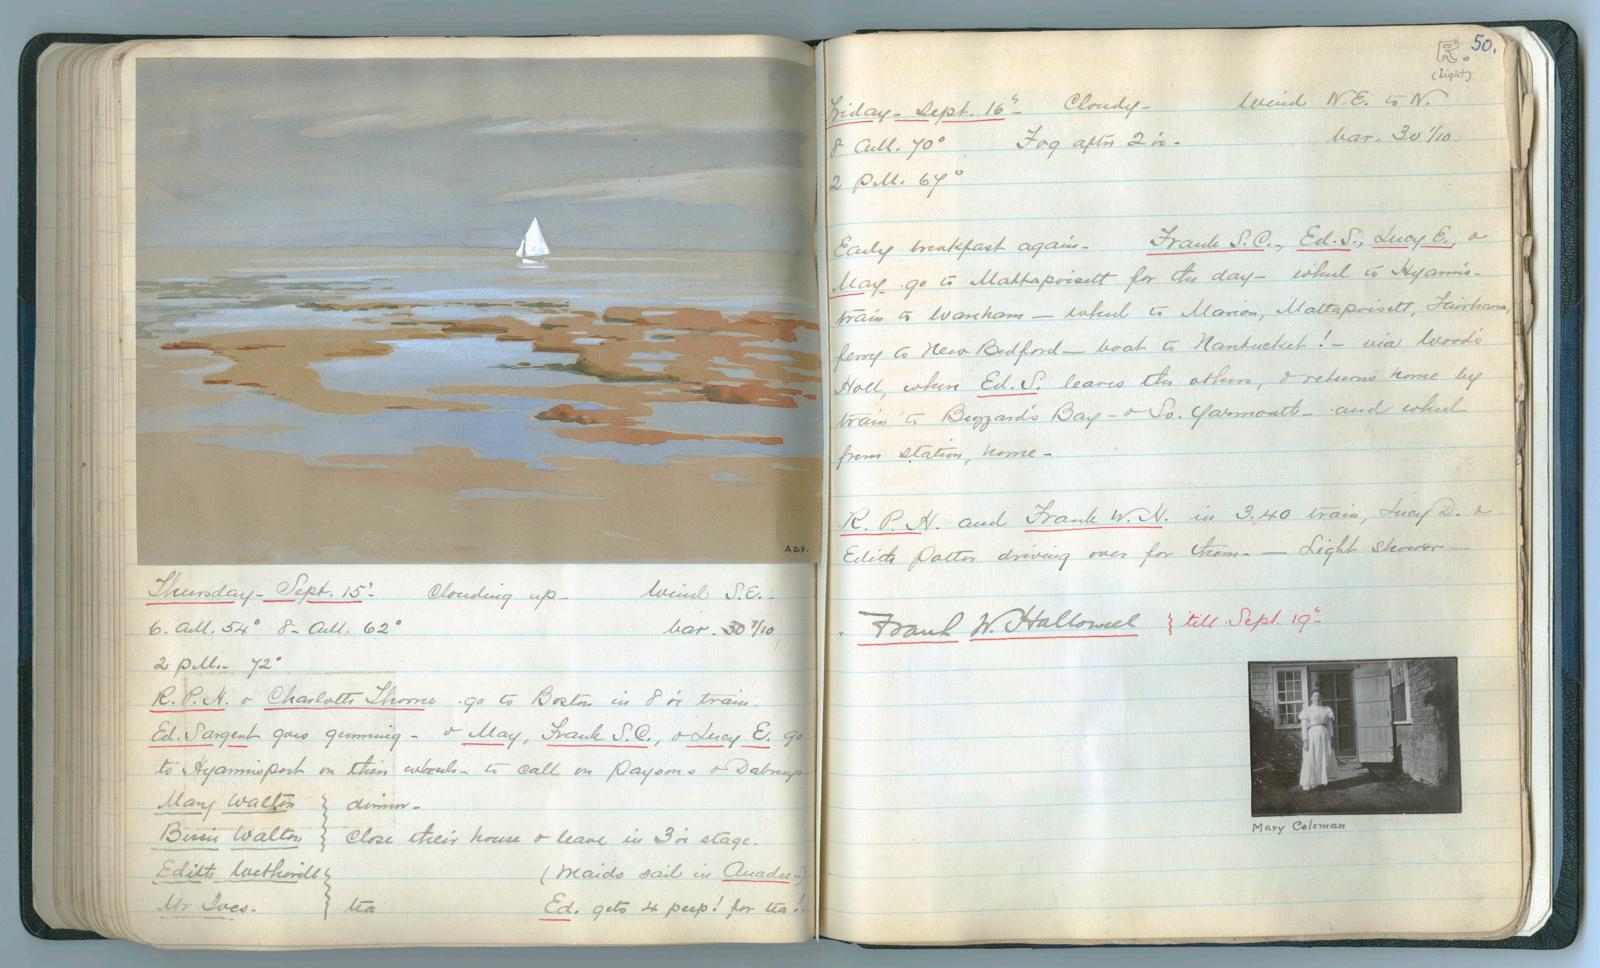 A.D.H.
Thursday - Sept. 15th Clouding up - Wind S.E. -
6. A.M. 54° 8 - A.M. 62° bar. 30 1/10
2 P.M. - 72°
R. P. H. & Charlotte Thorne go to Boston in 8 o'c train.
Ed. Sargent goes gunning - & May, Frank S.C., & Lucy E. go
to Hyannisport on their wheels - to call on Paysons &
Mary Walton } dinner -
Bessie Walton } close their house & leave in 3 o'c stage.
Edith Wetherill } (Maids sail in
Mr Ives - } tea Ed. gets 4 peep! for tea!
R. 50.
(Light)
Friday - Sept. 16th Cloudy - Wind N.E. to N.
8 A.M. 70° Fog after 2 o'c - bar. 30 1/10
2 P.M. 69°
Early breakfast again - Frank S.C., Ed. S., Lucy E., &
May go to Mattapoisett for the day - wheel to Hyannis -
train to Wareham - wheel to Marion, Mattapoisett, Fairhaven,
ferry to New Bedford - boat to Nantucket! - via Wood's
Holl, where Ed. S. leaves the others, & returns home by
train to Buzzard's Bay - & So. Yarmouth - and wheel
from station, home -
R. P. H. and Frank W. H. in 3.40 train, Lucy D. &
Edith Potter driving over for them - - Light shower -
Frank W. Hallowell } till Sept. 19th
Mary Coleman